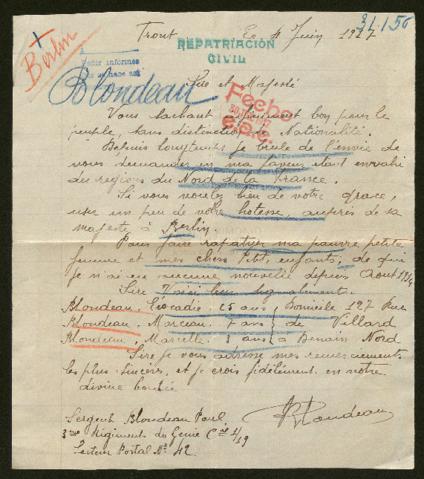 31.150
Front Le 4 Juin 1917
REPATRIACIÓN
CIVIL
Berlin
Pedir informes
Blondeau
Sire et Majesté
Fecho
Vous sachant infiniment bon pour le
peuple, sans distinction de Nationalité.
Depuis longtemps je brule de l'envie de
vous demander en ma faveur étant envahi
des régions du Nord de la France.
Si vous voulez bien de votre grace,
user un peu de votre hotesse, auprès de sa
majesté à Berlin.
Pour faire rapatrier ma pauvre petite
femme et mes chers Petits enfants, de qui
je n'ai eu aucune nouvelle depuis Aout 1914
Sire Voici leur signalement.
Blondeau, Léocadie, 25 ans Domicile 127 Rue
Blondeau, Marceau, 7 ans de Villard
Blondeau, Marcelle, 3 ans à Denain Nord
Sire je vous adresse mes remerciements
les plus sincers, et je crois fidèlement en votre
divine bontée
Sergent Blondeau Paul
3eme Régiment du Génie Cie 1/19
Secteur Postal No 42
Blondeau